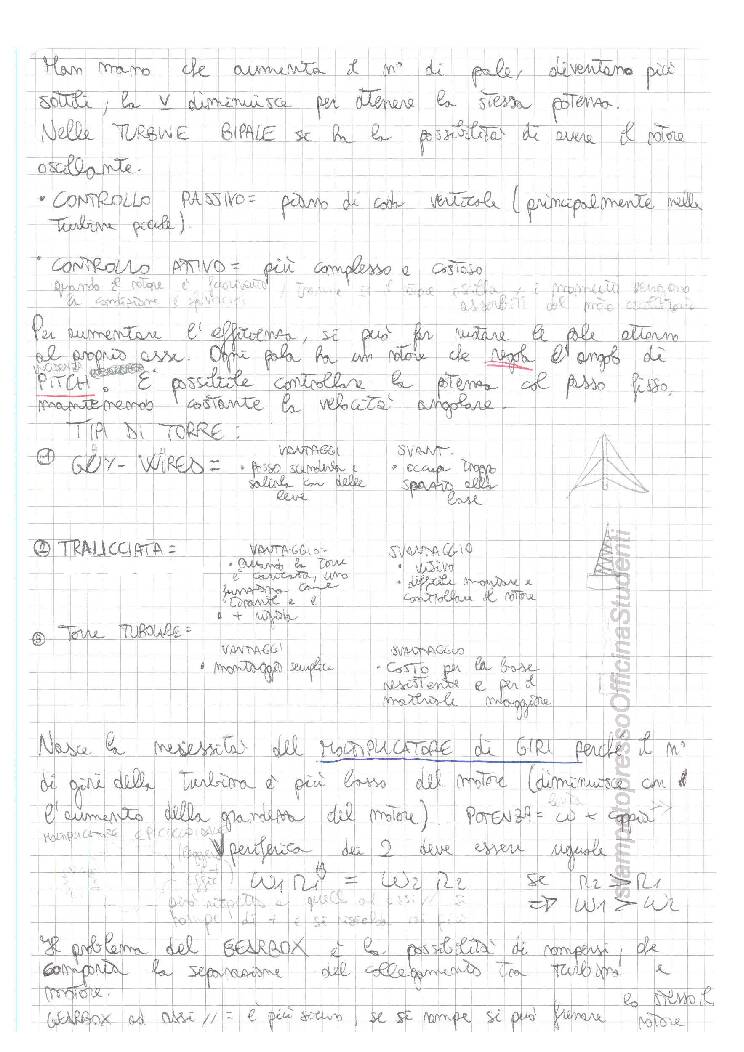 Man mano che aumenta il n° di pale, diventano più
sottili, la v diminuisce per ottenere la stessa potenza.
Nelle TURBINE BIPALE se ha la possibilità di avere il rotore
oscillante.
• CONTROLLO PASSIVO = piano di coda verticale (principalmente nelle
turbine piccole).
• CONTROLLO ATTIVO = più complesso e costoso
quando il rotore è
assorbiti dal
Per aumentare l'efficienza, si può far ruotare le pale attorno
al proprio asse. Ogni pala ha un motore che regola l'angolo di
PITCH. È possibile controllare la potenza col passo fisso,
mantenendo costante la velocità angolare.
TIPI DI TORRE:
① GUY-WIRED = VANTAGGI SVANT.
• posso scenderla e • occupa troppo
salirla con delle spazio alla
leve base
② TRALICCIATA = VANTAGGIO SVANTAGGIO
• Quando la torre • visivo
è caricata, uno • difficile montare e
funziona come controllare il rotore
tirante e è
• + rigida
③ Torre TUBOLARE =
VANTAGGI SVANTAGGIO
• montaggio semplice • Costo per la base
resistente e per il
materiale maggiore
stampatopressoOfficinaStudenti
Nasce la necessità del MOLTIPLICATORE di GIRI perché il n°
di giri della turbina è più basso del motore (diminuisce con
l'aumento della grandezza del motore) POTENZA = ω × coppia
MOLTIPLICATORE EPICICLOIDALE
V periferica dei 2 deve essere uguale
ω1 R1 = ω2 R2 se R2 > R1
⇒ ω1 > ω2
Il problema del GEARBOX è la possibilità di rompersi, che
comporta la separazione del collegamento tra turbina e
motore.
GEARBOX ad assi // = è più sicuro, se si rompe si può frenare lo stesso il
rotore